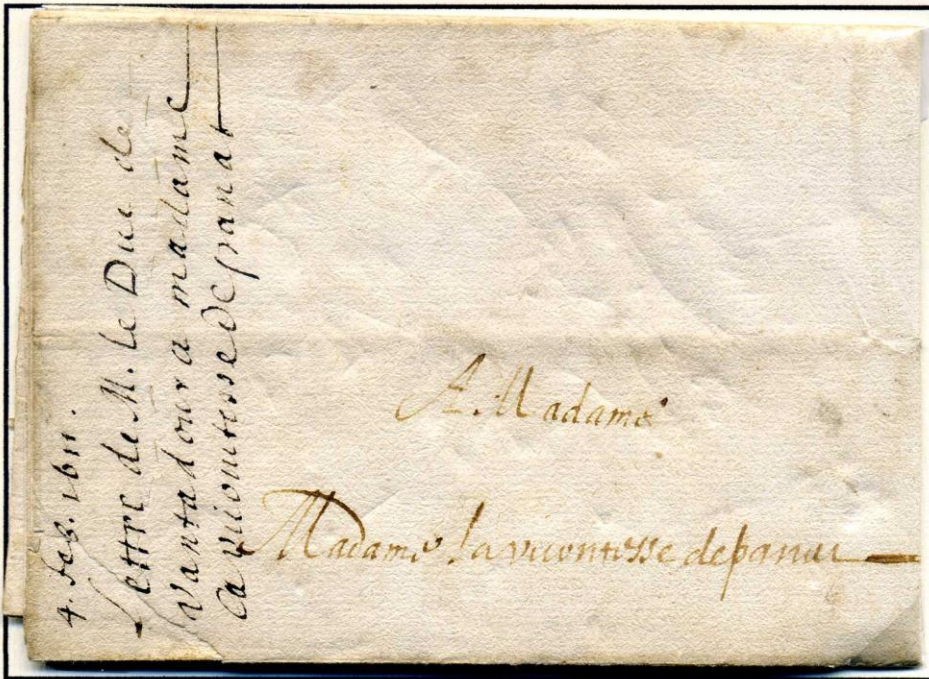 4. feb. 1611.
Lettre de M. le Duc de
Vantadour a madame
la vicomtesse de panat
A Madame
Madame la vicontesse de panat